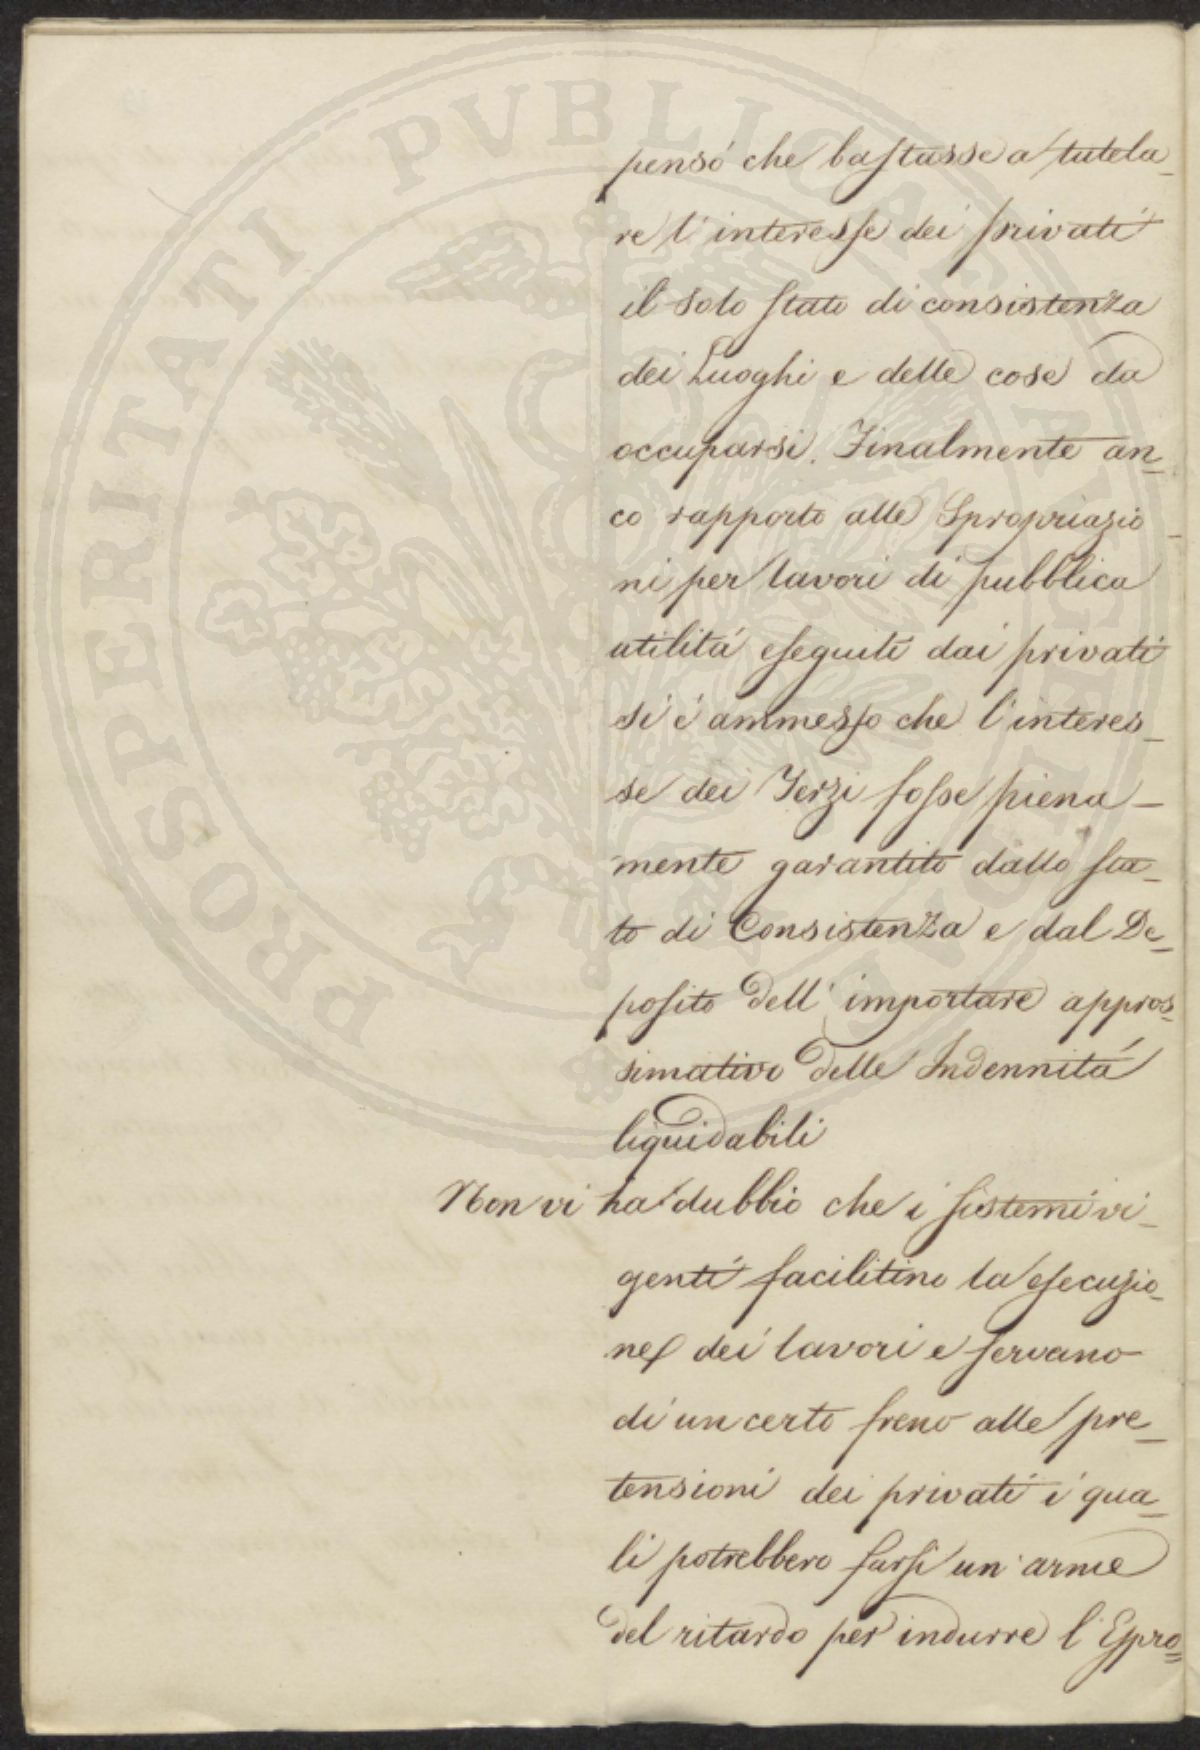 pensó che bastasse a tutela_
re l'interesse dei privati
il solo stato di consistenza
dei Luoghi e delle cose da
occuparsi. Finalmente an_
co rapporto alle Spropriazio_
ni per lavori di pubblica
utilitá eseguiti dai privati
si é ammesso che l'interes_
se dei Terzi fosse piena_
mente garantito dallo sta_
to di Consistenza e dal De_
posito dell'importare appros_
simativo delle Indennitá
liquidabili
Non vi ha dubbio che i sistemi vi_
genti facilitino la esecuzio_
ne dei lavori e servano
di un certo freno alle pre_
tensioni dei privati i qua_
li potrebbero farsi un'arme
del ritardo per indurre l'Espro=
PROSPERITATI PVBLICAE AVGENDAE